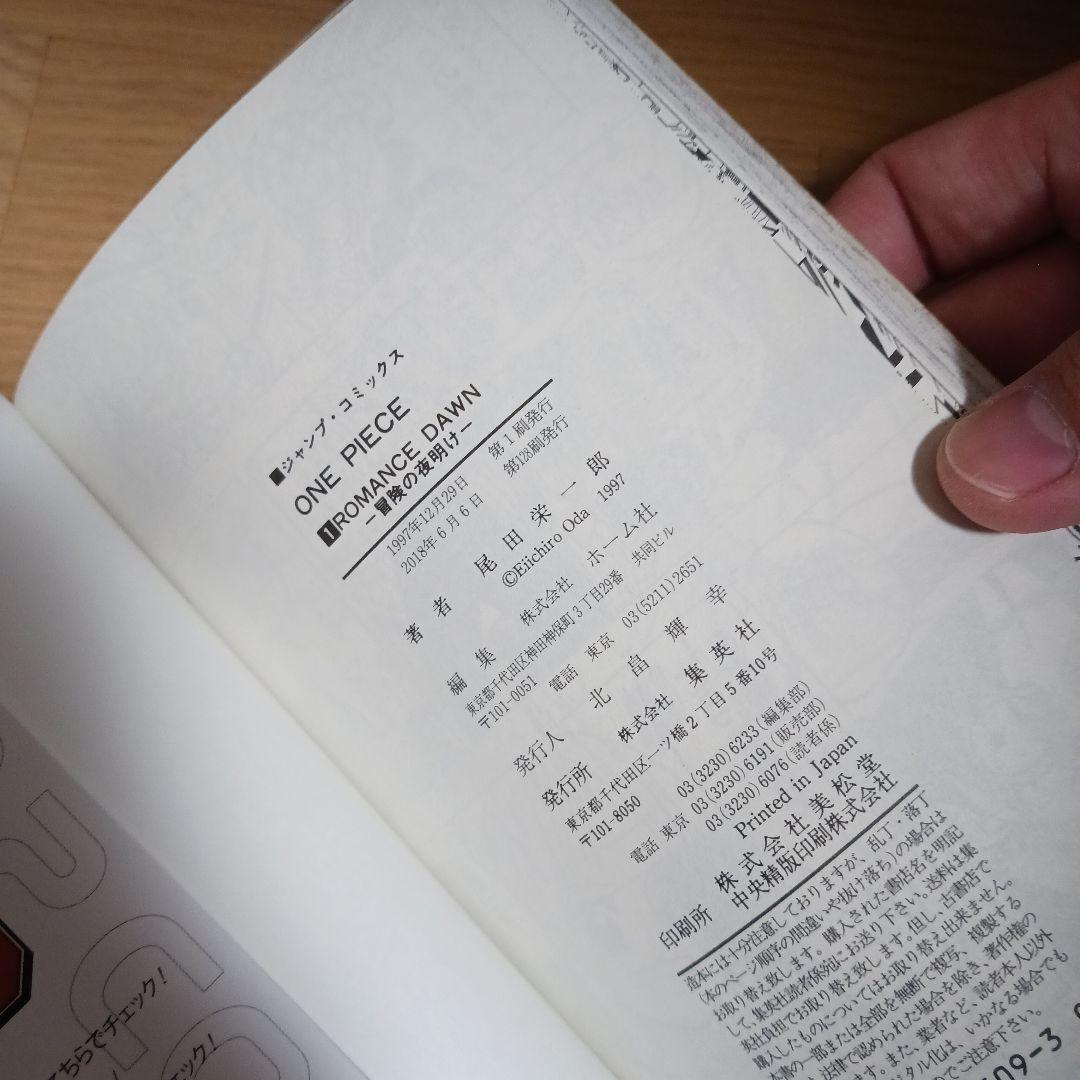 ■ジャンプ・コミックス
ONE PIECE
1 ROMANCE DAWN
—冒険の夜明け—
1997年12月29日 第1刷発行
2018年6月6日 第128刷発行
著者 尾田栄一郎
©Eiichiro Oda 1997
編集 株式会社 ホーム社
東京都千代田区神田神保町3丁目29番 共同ビル
〒101-0051
電話 東京 03(5211)2651
発行人 北畠輝幸
発行所 株式会社 集英社
東京都千代田区一ツ橋2丁目5番10号
〒101-8050
03(3230)6233(編集部)
電話 東京 03(3230)6191(販売部)
03(3230)6076(読者係)
Printed in Japan
印刷所 株式会社美松堂
中央精版印刷株式会社
造本には十分注意しておりますが、乱丁・落丁
(本のページ順序の間違いや抜け落ち)の場合は
お取り替え致します。購入された書店名を明記
して、集英社読者係宛にお送り下さい。送料は集
英社負担でお取り替え致します。但し、古書店で
購入したものについてはお取り替え出来ません。
本書の一部または全部を無断で複写、複製する
法律で認められた場合を除き、著作権の
また、業者など、読者本人以外
タル化は、いかなる場合でも
のでご注意下さい。
09-3
ちらでチェック!
ェック!